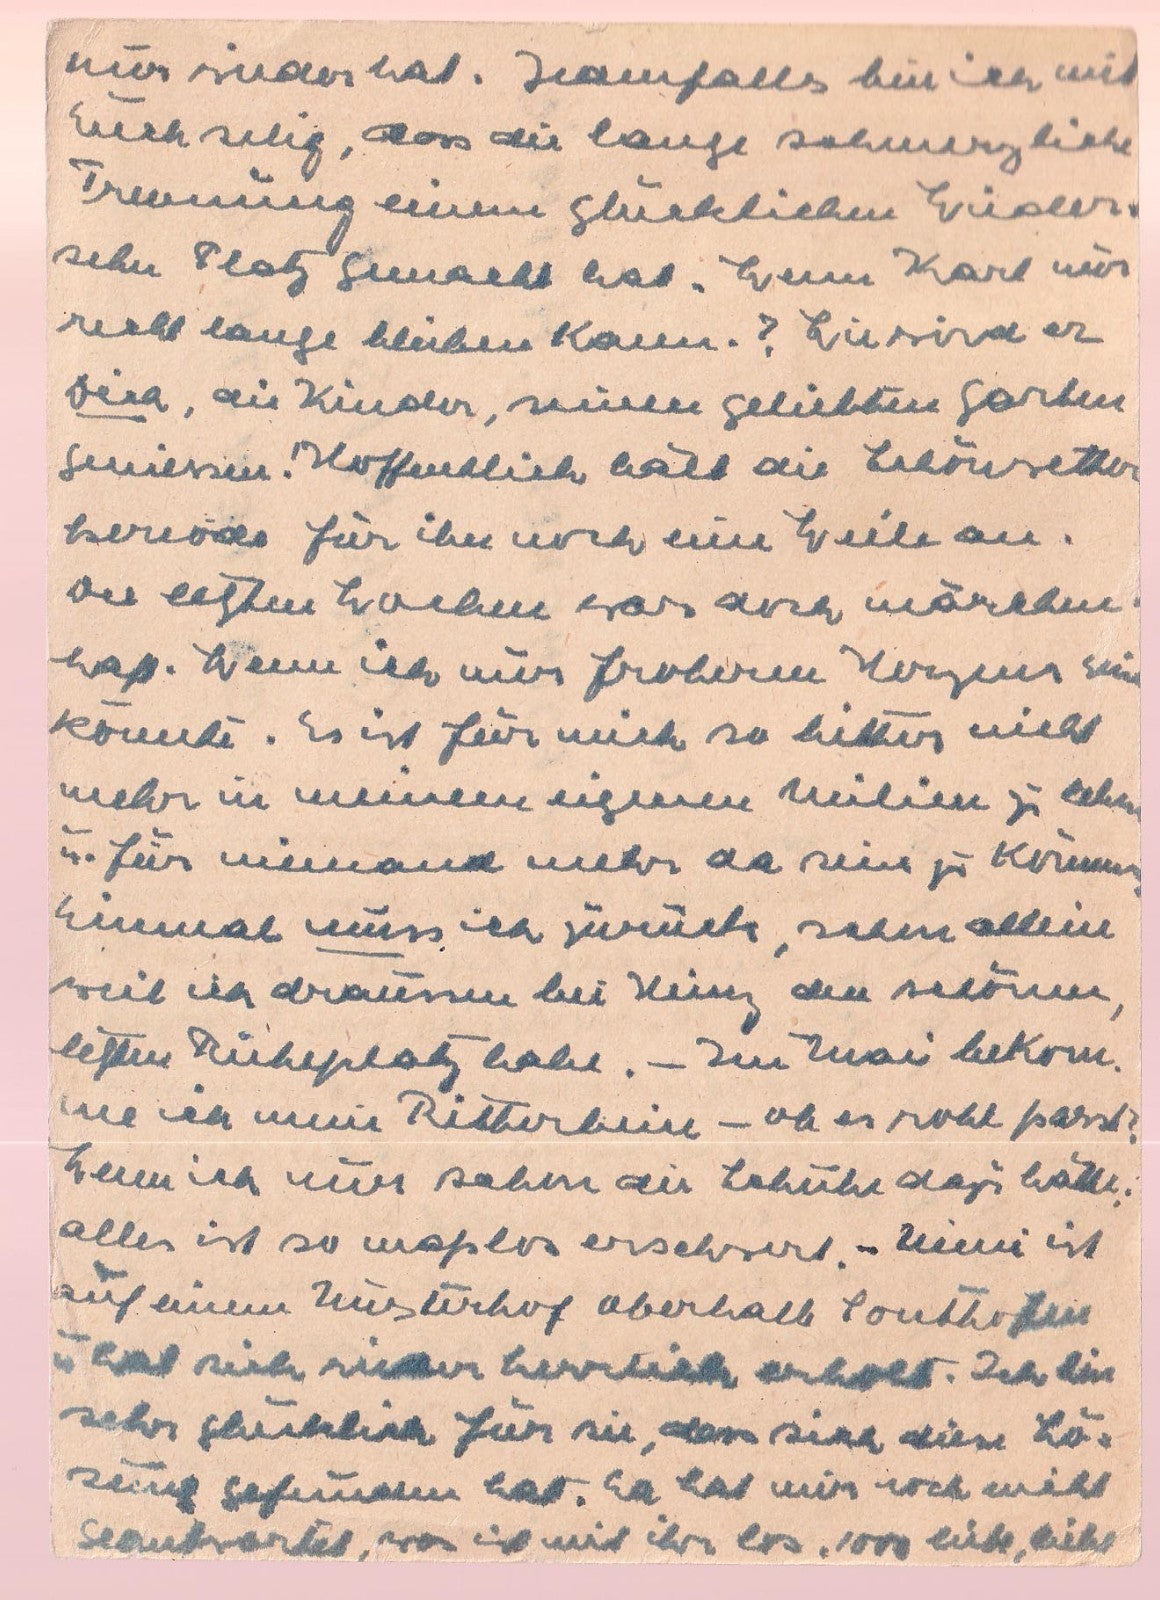 nur wieder hat. Jedenfalls bin ich mit
Euch selig, dass die lange schmerzliche
Trennung einem glücklichen Wieder-
sehn Platz gemacht hat. Wenn Karl nur
recht lange bleiben kann.? Wie wird er
Dich, die Kinder, seinen geliebten Garten
geniessen! Hoffentlich hält die Schönwetter
periode für ihn noch eine Weile an.
Die letzten Wochen war doch märchen-
haft. Wenn ich nur froheren Herzens sein
könnte. Es ist für mich so bitter nicht
mehr in meinem eigenen Milieu zu leben
u. für niemand mehr da sein zu können
Einmal muss ich zurück, schon allein
weil ich draussen bei Heinz den schönen,
letzten Ruheplatz habe. – Im Mai bekom-
me ich mein Ritterbein – ob es wohl passt?
Wenn ich nur schon die Schuhe dazu hätte;
alles ist so maßlos erschwert. – Mimi ist
auf einem Musterhof oberhalb Sonthofen
u hat sich wieder herrlich erholt. Ich bin
sehr glücklich für sie, dass sich diese Lö-
sung gefunden hat. hat mir noch nicht
geantwortet, was ist mit ihr los. 1000 liebe, liebe